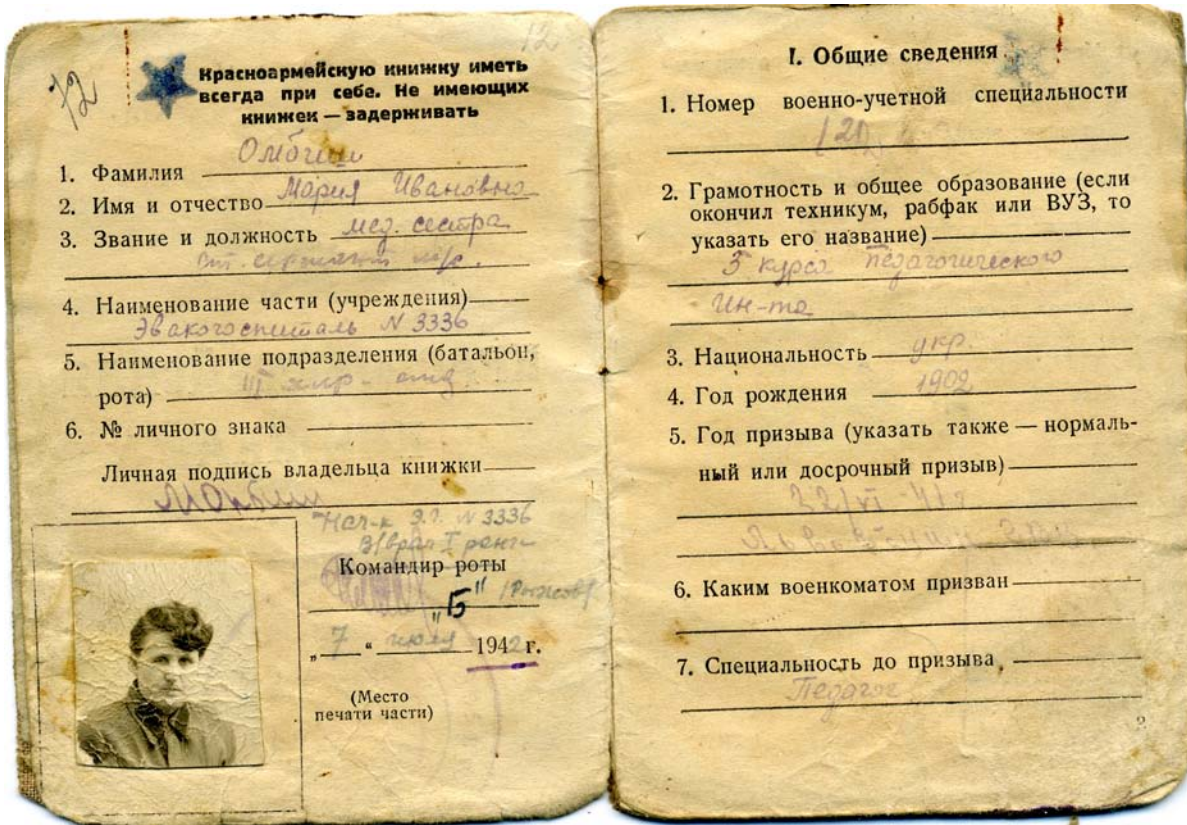 12
72
Красноармейскую книжку иметь
всегда при себе. Не имеющих
книжек — задерживать
1. Фамилия
2. Имя и отчество Мария Ивановна
3. Звание и должность мед. сестра
4. Наименование части (учреждения)
Эвакогоспиталь N 3336
5. Наименование подразделения (батальон,
рота) III хир-отд
6. № личного знака
Личная подпись владельца книжки
Нач-к Э.Г. N 3336
В/врач I ранга
Командир роты
"Б"
„7“ июля 1942 г.
(Место
печати части)
I. Общие сведения
1. Номер военно-учетной специальности
2. Грамотность и общее образование (если
окончил техникум, рабфак или ВУЗ, то
указать его название)
3 курса педагогического
Ин-та
3. Национальность укр.
4. Год рождения 1902
5. Год призыва (указать также — нормаль-
ный или досрочный призыв)
22/VI-41г
6. Каким военкоматом призван
7. Специальность до призыва
Педагог
2